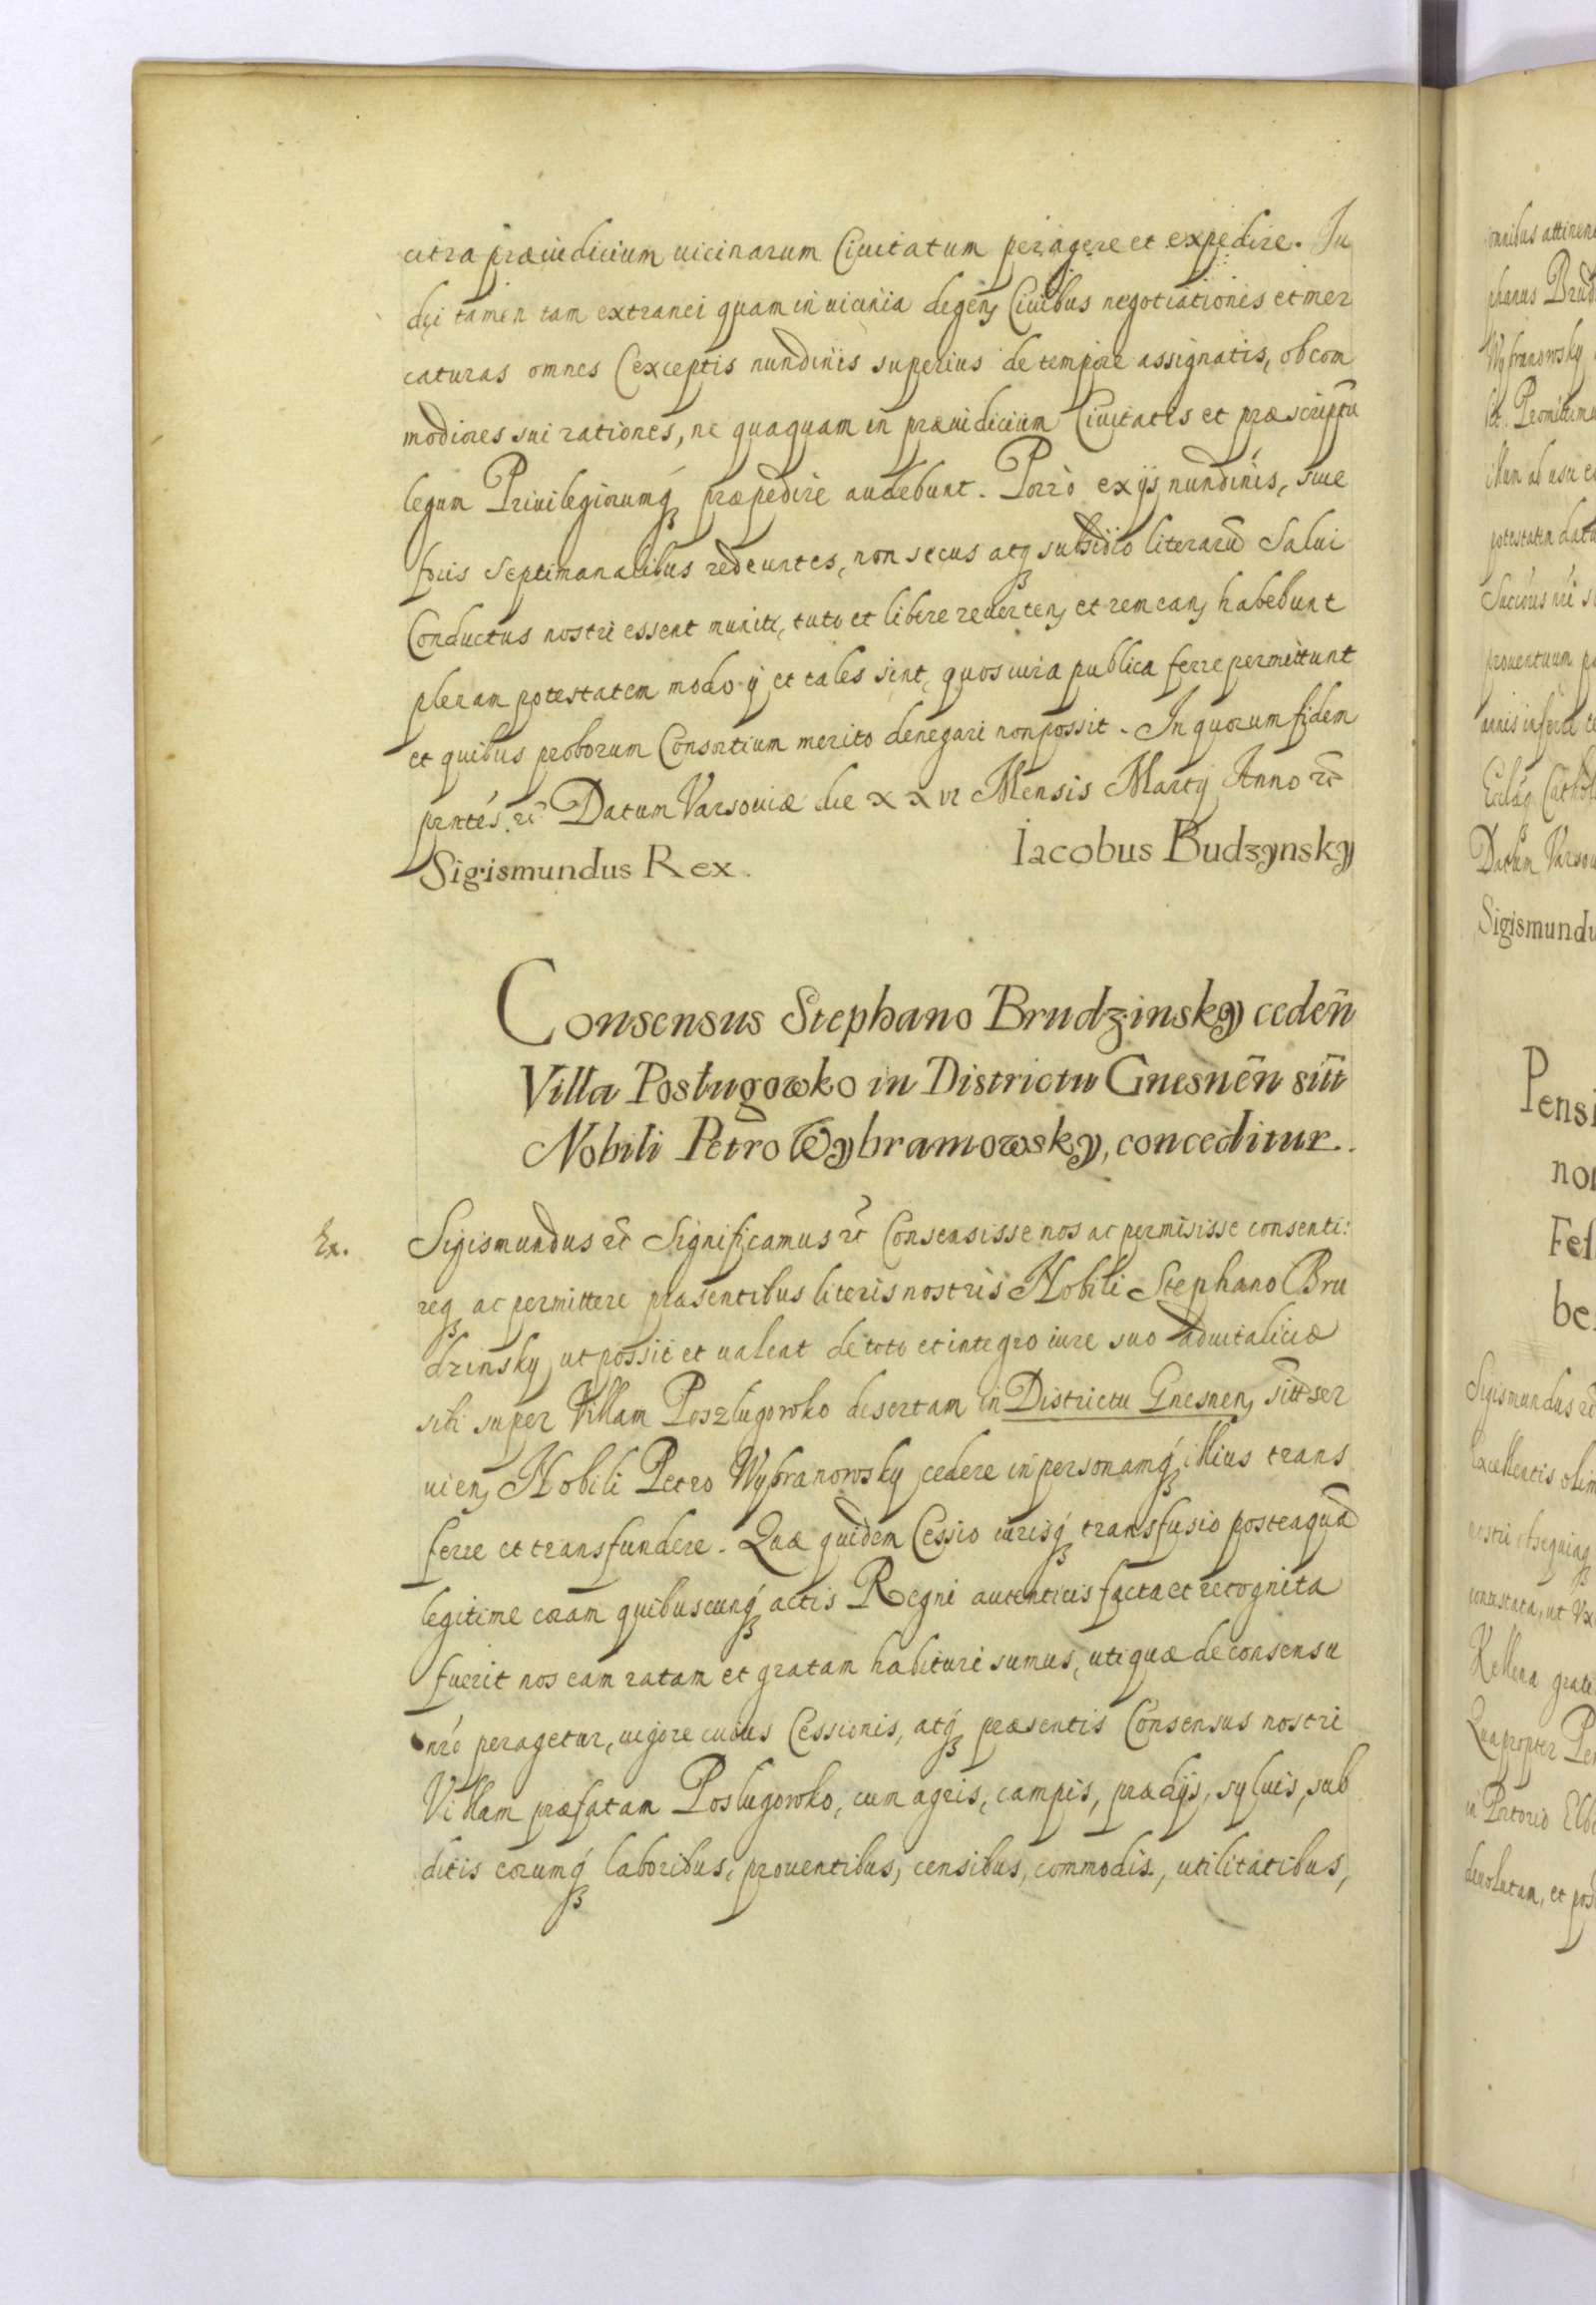 citra præiudicium uicinarum Ciuitatum peragere et expedire. Iu
dęi tamen tam extranei quam in uicinia degen Ciuibus negotiationes et mer
caturas omnes (exceptis nundinis superius de tempore assignatis, ob com
modiores sui rationes, ne quaquam in præiudicium Ciuitatis et præscriptũ
legum Priuilegiorumq́ præpedire audebunt. Porrò ex ijs nundinis, siue
foris septimanalibus redeuntes, non secus atq subsidio literarũ Salui
Conductus nostri essent muniti, tuto et libere reuerten et remean habebunt
plenam potestatem modo ij et tales sint, quos iura publica ferre permittunt
et quibus proborum Consortium merito denegari non possit. In quorum fidem
prntés. etc̃ Datum Varsouiæ die xxvi Mensis Martij Anno etc̃
Sigismundus Rex. Iacobus Budzynsky
Consensus Stephano Brudzinsky cedeñ
Villa Posługowko in Districtu Gnesneñ sitt̃
Nobili Petro Wybramowsky, conceditur.
Ex. Sigismundus etc̃ Significamus etc̃ Consensisse nos ac permisisse consenti:
req ac permittere præsentibus literis nostris Nobili Stephano Bru
dzinsky, ut possit et ualeat de toto et integro iure suo aduitalicio
sibi super Villam Poszlugowko desertam in Districtu Gnesnen sitt̃ ser
uien Nobili Petro Wybranowsky cedere in personamq́ illius trans
ferre et transfundere. Quæ quidem Cessio iurisq́ transfusio posteaquã
legitime coram quibuscunq́ actis Regni autenticis facta et recognita
fuerit nos eam ratam et gratam habituri sumus, uti quæ de consensu
nró peragetur, uigore cuius Cessionis, atq́ præsentis Consensus nostri
Villam præfatam Poslugowko, cum agris, campis, prædijs, syluis, sub
ditis eorumq́ laboribus, prouentibus, censibus, commodis, utilitatibus,